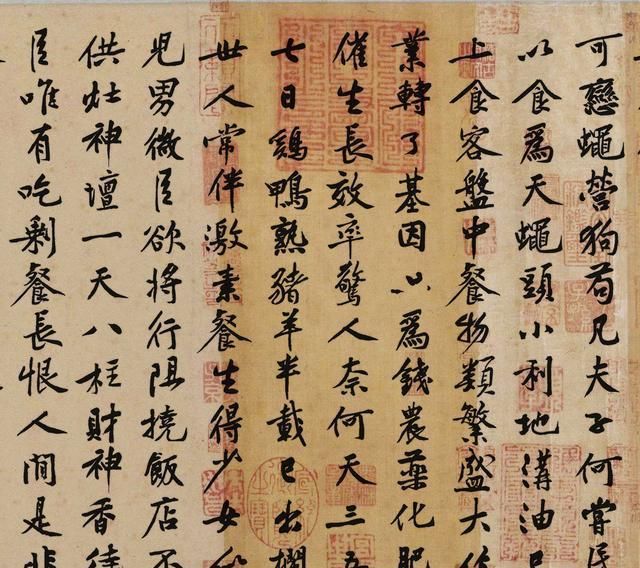 可戀蠅營狗苟凡夫子何嘗民
以食爲天蠅頭小利地溝油已
上食客盤中餐物類繁盛大作
業轉了基因以爲錢農藥化肥
催生長效率驚人奈何天三五
七日鷄鴨熟豬羊半載已出欄
世人常伴激素餐生得少女
兒男微臣欲將行阻撓飯店不
供灶神壇一天八柱財神香
臣唯有吃剩餐長恨人間是非